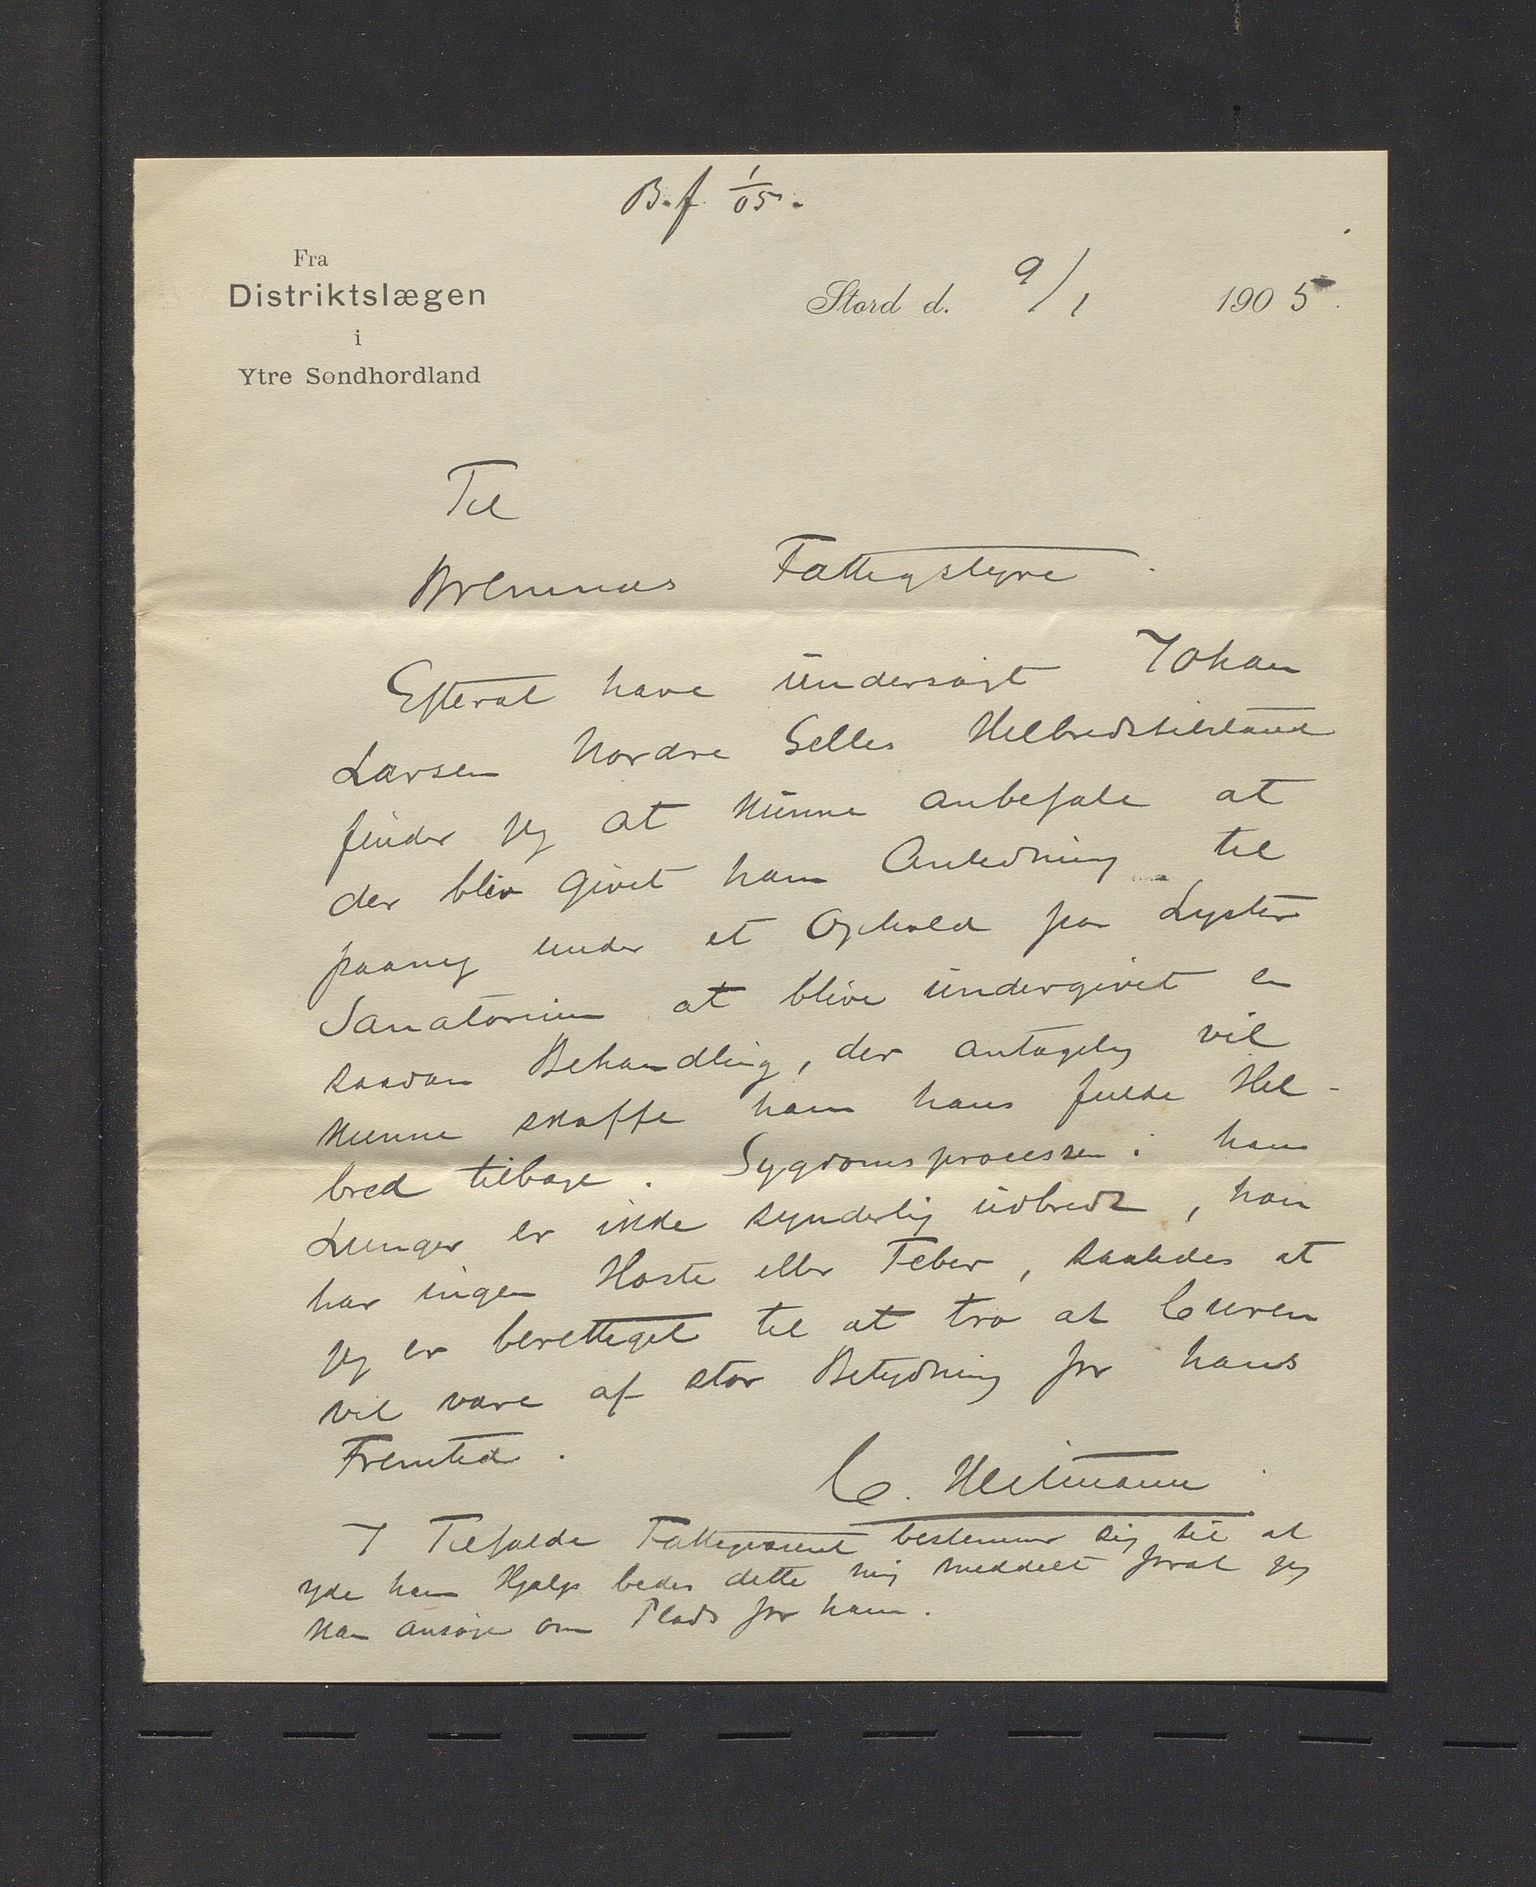 B.f. 1/05.
Fra
Distriktslægen
i
Ytre Søndhordland
Stord d. 9/1 1905.
Til
Bremnes Fattigstyre.
Efterat have undersøgt Johan
Larsen Nordre Selles Helbredstilstand
finder jeg at kunne anbefale at
der blir givet ham Anledning til
paany under et Ophold paa Lyster
Sanatorium at blive undergivet en
saadan Behandling, der antagelig vil
kunne skaffe ham hans fulde Hel-
bred tilbage. Sygdomsprocessen i hans
Lunger er ikke synderlig udbredt, han
har ingen Hoste eller Feber, saaledes at
jeg er berettiget til at tro at Curen
vil være af stor Betydning for hans
Fremtid.
C. Heitmann
I Tilfælde Fattigvæsenet bestemmer sig til at
yde ham Hjælp bedes dette mig meddelt forat jeg
kan ansøge om Plads for ham.